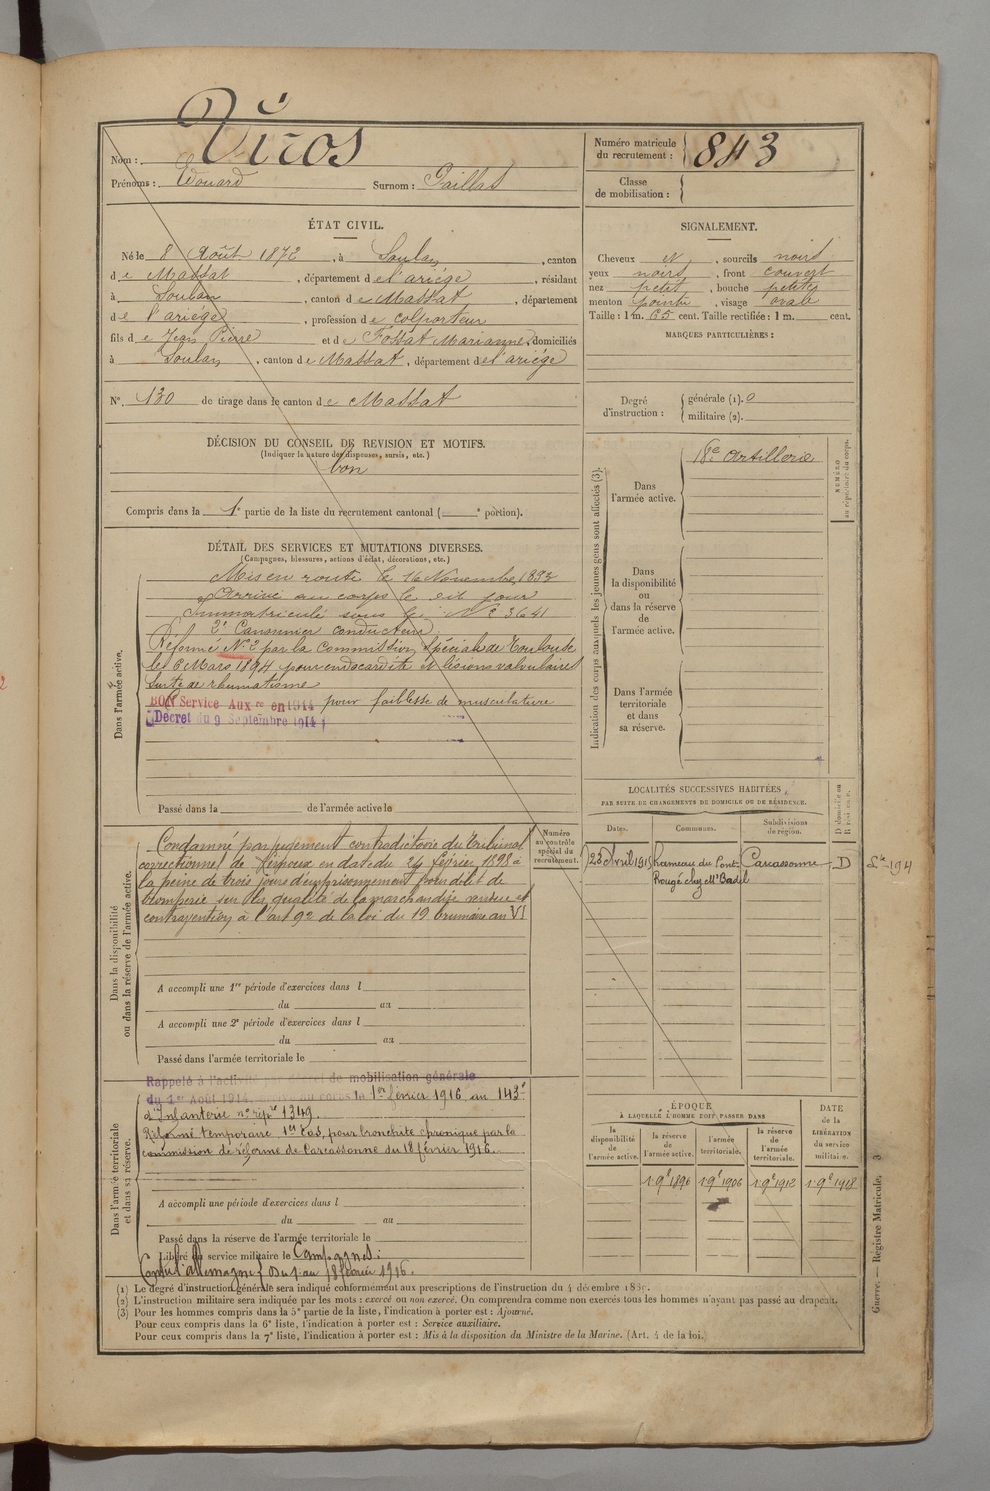 Nom : Viros
Prénoms : Edouard Surnom : Paillas
Numéro matricule du recrutement : 843
Classe de mobilisation :
ÉTAT CIVIL.
Né le 8 Août 1872, à Soulan, canton
de Massat, département de l'ariége, résidant
à Soulan, canton de Massat, département
de l'ariége, profession de colporteur
fils de Jean Pierre et de Fossat Marianne, domiciliés
à Soulan, canton de Massat, département de l'ariége
N° 130 de tirage dans le canton de Massat
SIGNALEMENT.
Cheveux N, sourcils noirs
yeux noirs, front couvert
nez petit, bouche petite
menton pointu, visage ovale
Taille : 1 m. 65 cent. Taille rectifiée : 1 m. cent.
MARQUES PARTICULIÈRES :
Degré d'instruction : générale (1). 0
militaire (2).
DÉCISION DU CONSEIL DE REVISION ET MOTIFS.
(Indiquer la nature des dispenses, sursis, etc.)
bon
Compris dans la 1e partie de la liste du recrutement cantonal ( e portion).
DÉTAIL DES SERVICES ET MUTATIONS DIVERSES.
(Campagnes, blessures, actions d'éclat, décorations, etc.)
Dans l'armée active.
Mis en route le 16 Novembre 1893
Arrivé au corps le dit jour
Immatriculé sous le N° 3641
2e Canonnier conducteur
Réformé N° 2 par la Commission spéciale de Toulouse
le 6 Mars 1894 pour endocardite et lésions valvulaires
suite de rhumatisme
BON Service Auxre en 1914 pour faiblesse de musculature
(Décret du 9 Septembre 1914)
Passé dans la de l'armée active le
Indication des corps auxquels les jeunes gens sont affectés (3).
NUMÉRO au répertoire du corps.
Dans l'armée active.
18e Artillerie
Dans la disponibilité ou dans la réserve de l'armée active.
Dans l'armée territoriale et dans sa réserve.
Dans la disponibilité ou dans la réserve de l'armée active.
Numéro au contrôle spécial du recrutement.
Condamné par jugement contradictoire du Tribunal
correctionnel de Limoux en date du 24 février 1898 à
la peine de trois jours d'emprisonnement pour délit de
tromperie sur la qualité de la marchandise vendue et
contravention à l'art 92 de la loi du 19 brumaire an VI
A accompli une 1re période d'exercices dans l
du au
A accompli une 2e période d'exercices dans l
du au
Passé dans l'armée territoriale le
LOCALITÉS SUCCESSIVES HABITÉES
PAR SUITE DE CHANGEMENTS DE DOMICILE OU DE RÉSIDENCE.
Dates. Communes. Subdivisions de région. D domicile ou R résidence.
23 Avril 1915 hameau du Pont Carcassonne D
Rougé chez Mr Badel
194
Dans l'armée territoriale et dans sa réserve.
Rappelé à l'activité par décret de mobilisation générale
du 1er Août 1914. Arrivé au corps le 1er février 1916 au 143e
d'Infanterie n° rép. 1349.
Réformé temporaire 1er Cas, pour bronchite chronique par la
commission de réforme de Carcassonne du 18 février 1916.
A accompli une période d'exercices dans l
du au
Passé dans la réserve de l'armée territoriale le
Libéré du service militaire le Campagnes :
Contre l'allemagne } Du 1 au 18 février 1916.
ÉPOQUE
À LAQUELLE L'HOMME DOIT PASSER DANS
DATE de la LIBÉRATION du service militaire.
la disponibilité de l'armée active. la réserve de l'armée active. l'armée territoriale. la réserve de l'armée territoriale.
1 9e 1896 1 9e 1906 1 9e 1912 1 9e 1918
(1) Le degré d'instruction générale sera indiqué conformément aux prescriptions de l'instruction du 4 décembre 1889.
(2) L'instruction militaire sera indiquée par les mots : exercé ou non exercé. On comprendra comme non exercés tous les hommes n'ayant pas passé au drapeau.
(3) Pour les hommes compris dans la 5e partie de la liste, l'indication à porter est : Ajourné.
Pour ceux compris dans la 6e liste, l'indication à porter est : Service auxiliaire.
Pour ceux compris dans la 7e liste, l'indication à porter est : Mis à la disposition du Ministre de la Marine. (Art. 4 de la loi.)
Guerre. — Registre Matricule. 3